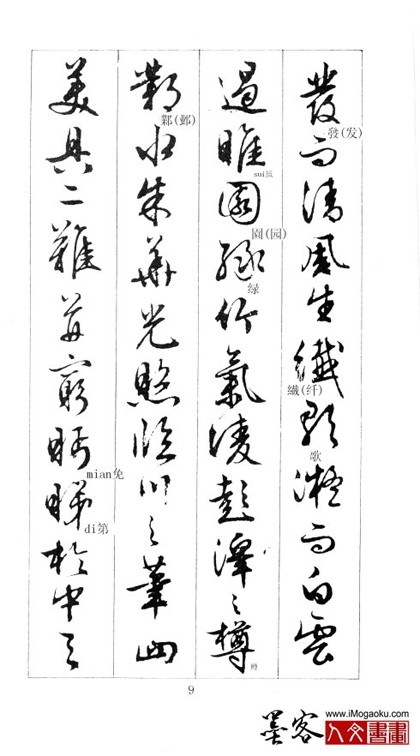 發而清風生纖歌凝而白雲
發(发)
纖(纤)
歌
遏睢園綠竹氣淩彭澤之樽
sui虽
園(园)
绿
樽
鄴水朱華光照臨川之筆四
美具二難並窮眄睇於中天
mian免
di第
9
墨客
www.iMogaoku.com
人文書畫